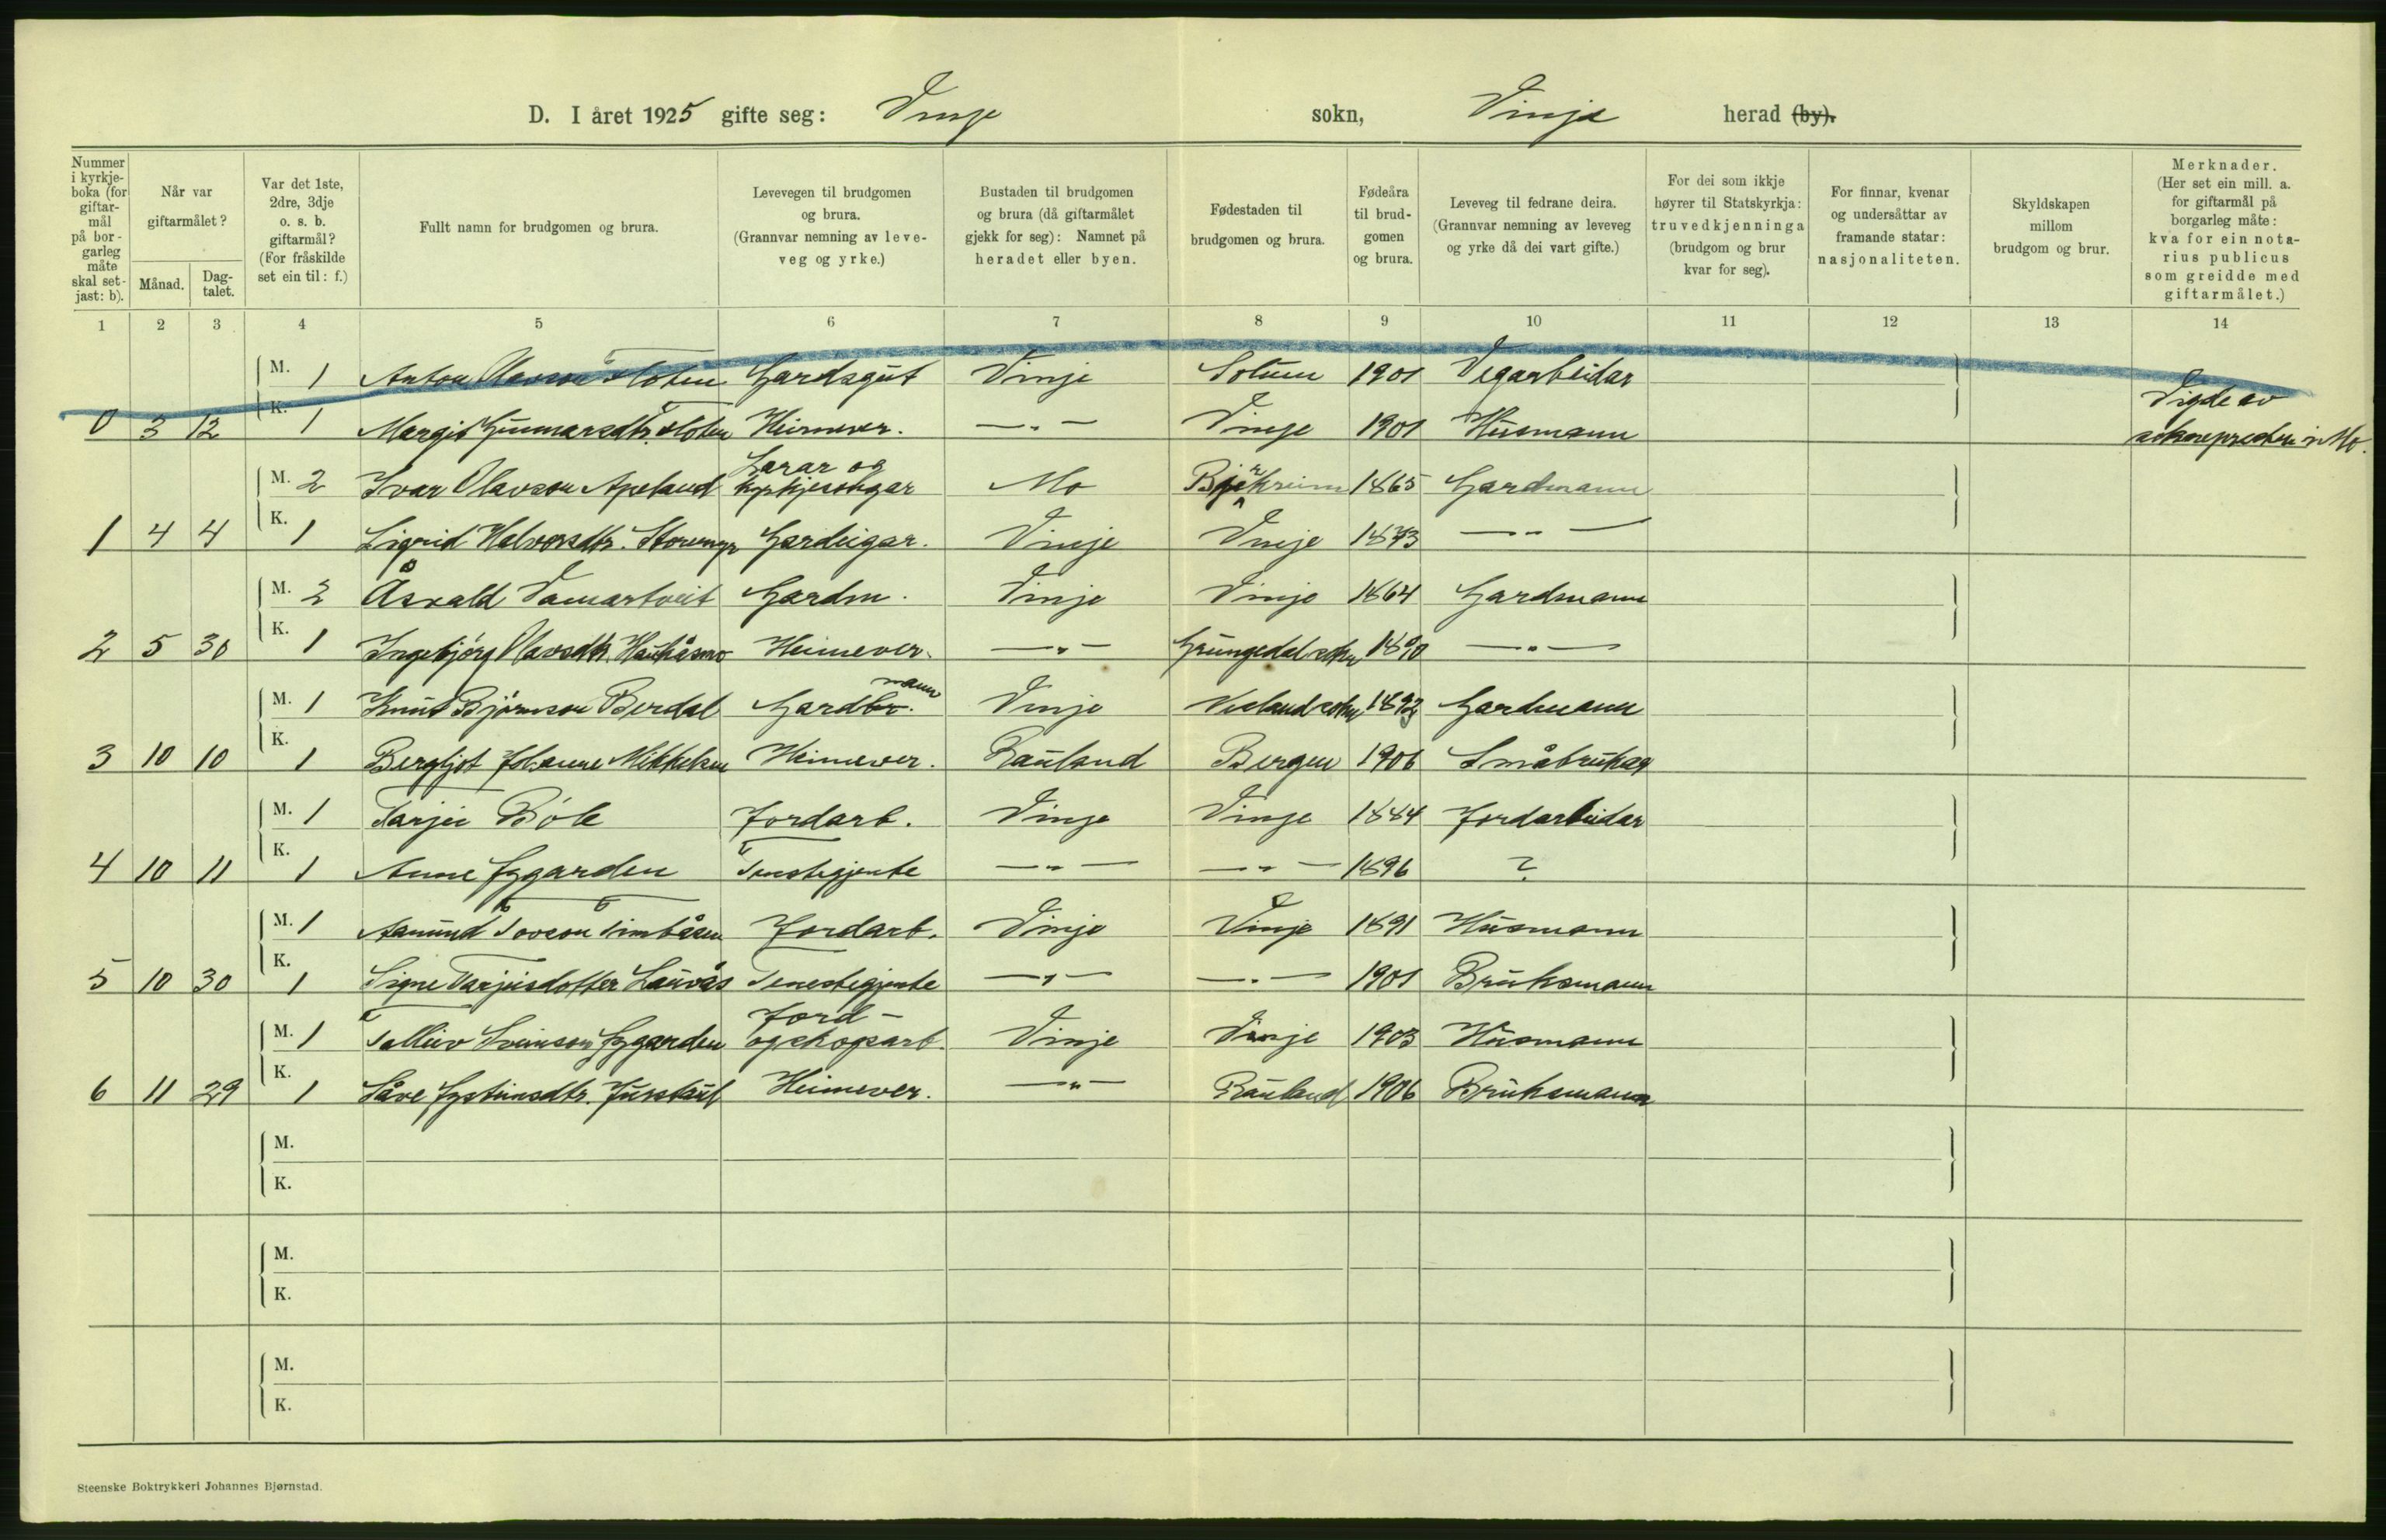 D. I året 1925 gifte seg: Vinje sokn, Vinje herad (by).
Nummer i kyrkje-boka (for giftar-mål på bor-garleg måte skal set-jast: b).
Når var giftarmålet?
Månad.
Dag-talet.
Var det 1ste, 2dre, 3dje o. s. b. giftarmål? (For fråskilde set ein til: f.)
Fullt namn for brudgomen og brura.
Levevegen til brudgomen og brura. (Grannvar nemning av leve-veg og yrke.)
Bustaden til brudgomen og brura (då giftarmålet gjekk for seg): Namnet på heradet eller byen.
Fødestaden til brudgomen og brura.
Fødeåra til brud-gomen og brura.
Leveveg til fedrane deira. (Grannvar nemning av leveveg og yrke då dei vart gifte.)
For dei som ikkje høyrer til Statskyrkja: truvedkjenninga (brudgom og brur kvar for seg).
For finnar, kvenar og undersåttar av framande statar: nasjonaliteten.
Skyldskapen millom brudgom og brur.
Merknader. (Her set ein mill. a. for giftarmål på borgarleg måte: kva for ein nota-rius publicus som greidde med giftarmålet.)
1 2 3 4 5 6 7 8 9 10 11 12 13 14
M. 1 Anton Olavson Gardsgut Vinje Solum 1901 Vegarbeidar
0 3 12 K. 1 Margit Gunnarsdtr. Heimever. —"— Vinje 1901 Husmann Vigde av soknepresten i Mo.
M. 2 Ivar Olavson Apeland Lærar og kyrkjesongar Mo Bjerkreim 1865 Gardmann
1 4 4 K. 1 Sigrid Halvorsdtr. Gardeigar. Vinje Vinje 1873 —"—
M. 2 Åsvald Vamartveit Gardm. Vinje Vinje 1864 Gardmann
2 5 30 K. 1 Ingebjörg Olavsdtr. Haukåsmo Heimever. —"— Grungedal sokn 1890 —"—
M. 1 Knut Björnson Berdal Gardbr. mann Vinje sokn 1892 Gardmann
3 10 10 K. 1 Bergljot Johanne Mikkelsen Heimever. Rauland Bergen 1906 Småbrukar
M. 1 Tarjei Böle Jordarb. Vinje Vinje 1884 Jordarbeidar
4 10 11 K. 1 Anne Jygarden Tenestegjente —"— —"— 1896 ?
M. 1 Aamund Tovson Timbåsen Jordarb. Vinje Vinje 1891 Husmann
5 10 30 K. 1 Signe Tarjeisdotter Lauvås Tenestegjente —"— —"— 1901 Bruksmann
M. 1 Talleiv Sveinson Jygarden Jord- og skogsarb. Vinje Vinje 1903 Husmann
6 11 29 K. 1 Såve Jysteinsdtr. Heimever. —"— Rauland 1906 Bruksmann
M.
K.
M.
K.
M.
K.
Steenske Boktrykkeri Johannes Bjørnstad.